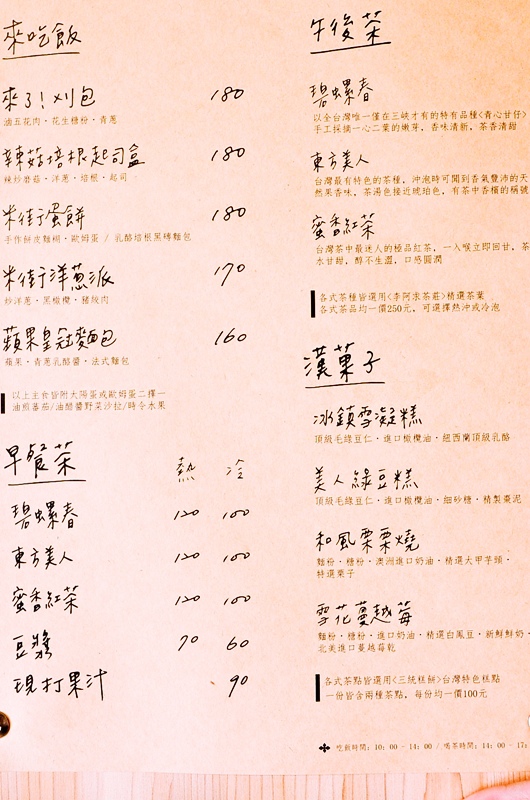 來吃飯
來了!刈包 180
滷五花肉・花生糖粉・青蔥
辣菇培根起司盒 180
辣炒磨菇・洋蔥・培根・起司
米街蛋餅 180
手作餅皮麵糊・歐姆蛋 / 乳酪培根黑磚麵包
米街洋蔥派 170
炒洋蔥・黑橄欖・豬絞肉
蘋果皇冠麵包 160
蘋果・青蔥乳酪醬・法式麵包
以上主食皆附太陽蛋或歐姆蛋二擇一
油煎蕃茄/油醋醬野菜沙拉/時令水果
早餐茶
熱 冷
碧螺春 120 100
東方美人 120 100
蜜香紅茶 120 100
豆漿 70 60
現打果汁 90
午後茶
碧螺春
以全台灣唯一僅在三峽才有的特有品種<青心甘仔>
手工採摘一心二葉的嫩芽，香味清新，茶香清甜
東方美人
台灣最有特色的茶種，沖泡時可聞到香氣豐沛的天
然果香味，茶湯色接近琥珀色，有茶中香檳的稱號
蜜香紅茶
台灣茶中最迷人的極品紅茶，一入喉立即回甘，茶
水甘甜，醇不生澀，口感圓潤
各式茶種皆選用<李阿求茶莊>精選茶葉
各式茶品均一價250元，可選擇熱沖或冷泡
漢菓子
冰鎮雪凝糕
頂級毛綠豆仁・進口橄欖油・紐西蘭頂級乳酪
美人綠豆糕
頂級毛綠豆仁・進口橄欖油・細砂糖・精製棗泥
和風栗栗燒
麵粉・糖粉・澳洲進口奶油・精選大甲芋頭・
特選栗子
雪花蔓越莓
麵粉・糖粉・進口奶油・精選白鳳豆・新鮮鮮奶・
北美進口蔓越莓乾
各式茶點皆選用<三統糕餅>台灣特色糕點
一份皆含兩種茶點，每份均一價100元
吃飯時間: 10: 00 - 14: 00 / 喝茶時間: 14: 00 - 17: